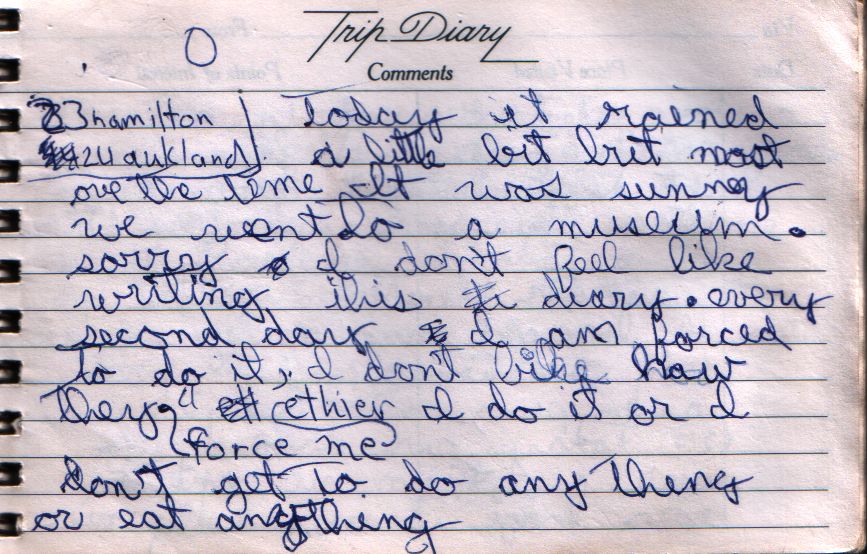 Trip Diary
Comments
23 hamilton Today it rained
24 aukland. a little bit but most
ove the time It was sunney
we went to a museum.
sorry I don't feel like
writing this diary. every
second day I am forced
to do it, I dont like how
they " ethier I do it or I
force me
don't get to do any thing
or eat anything